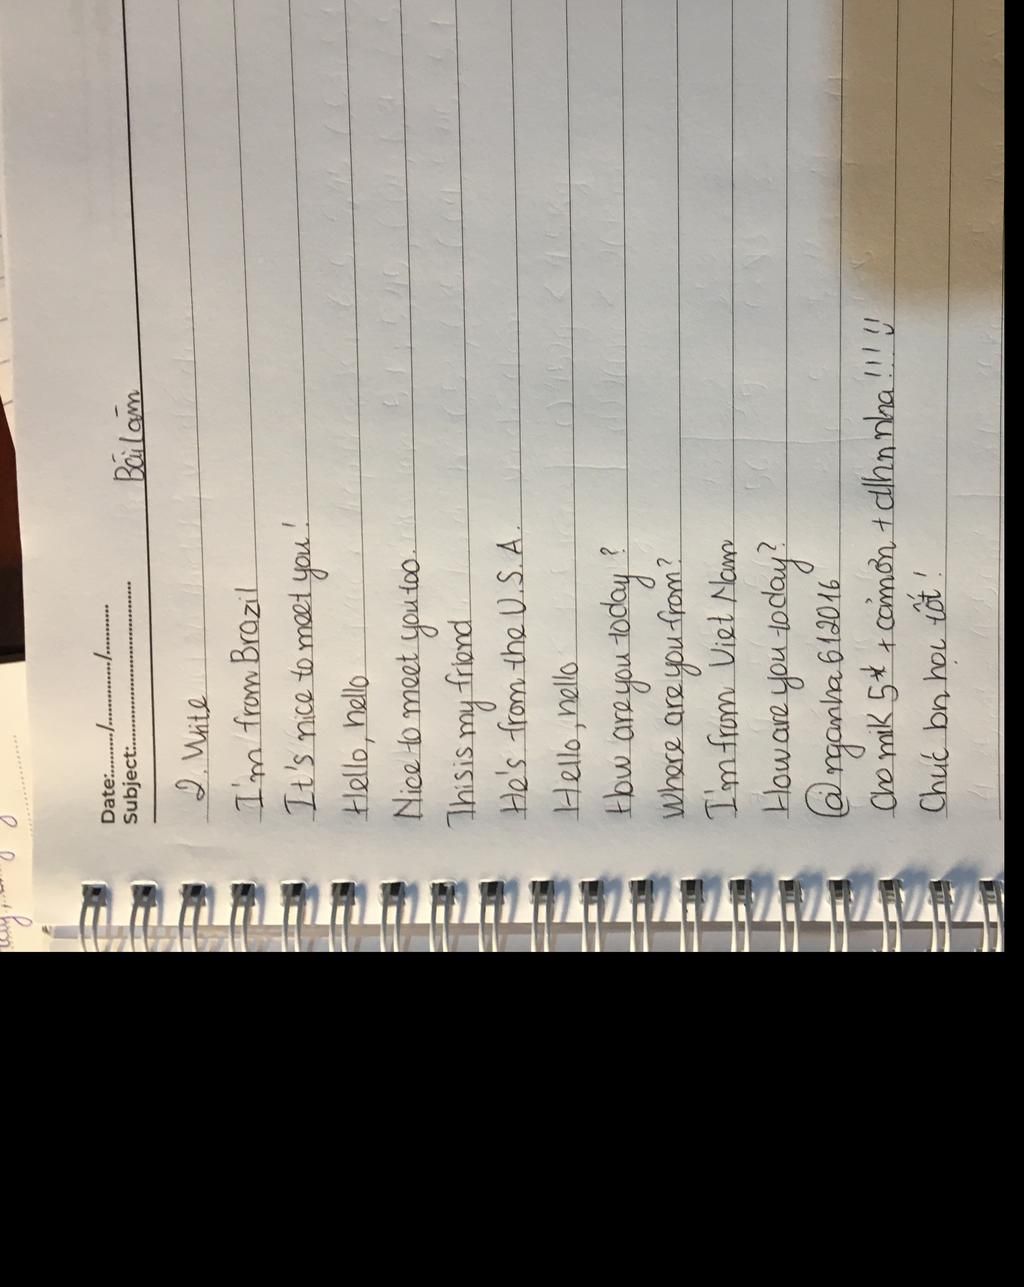 Date:........../............./..........
Subject:..............................
Bài làm
2. Write
I'm from Brazil
It's nice to meet you!
Hello, hello
Nice to meet you too.
This is my friend
He's from the U.S.A.
Hello, hello
How are you today?
Where are you from?
I'm from Viet Nam
How are you today?
@nganha612016
Cho mik 5* + cảm ơn + dlhnnha!!!!!
Chúc bn học tốt!